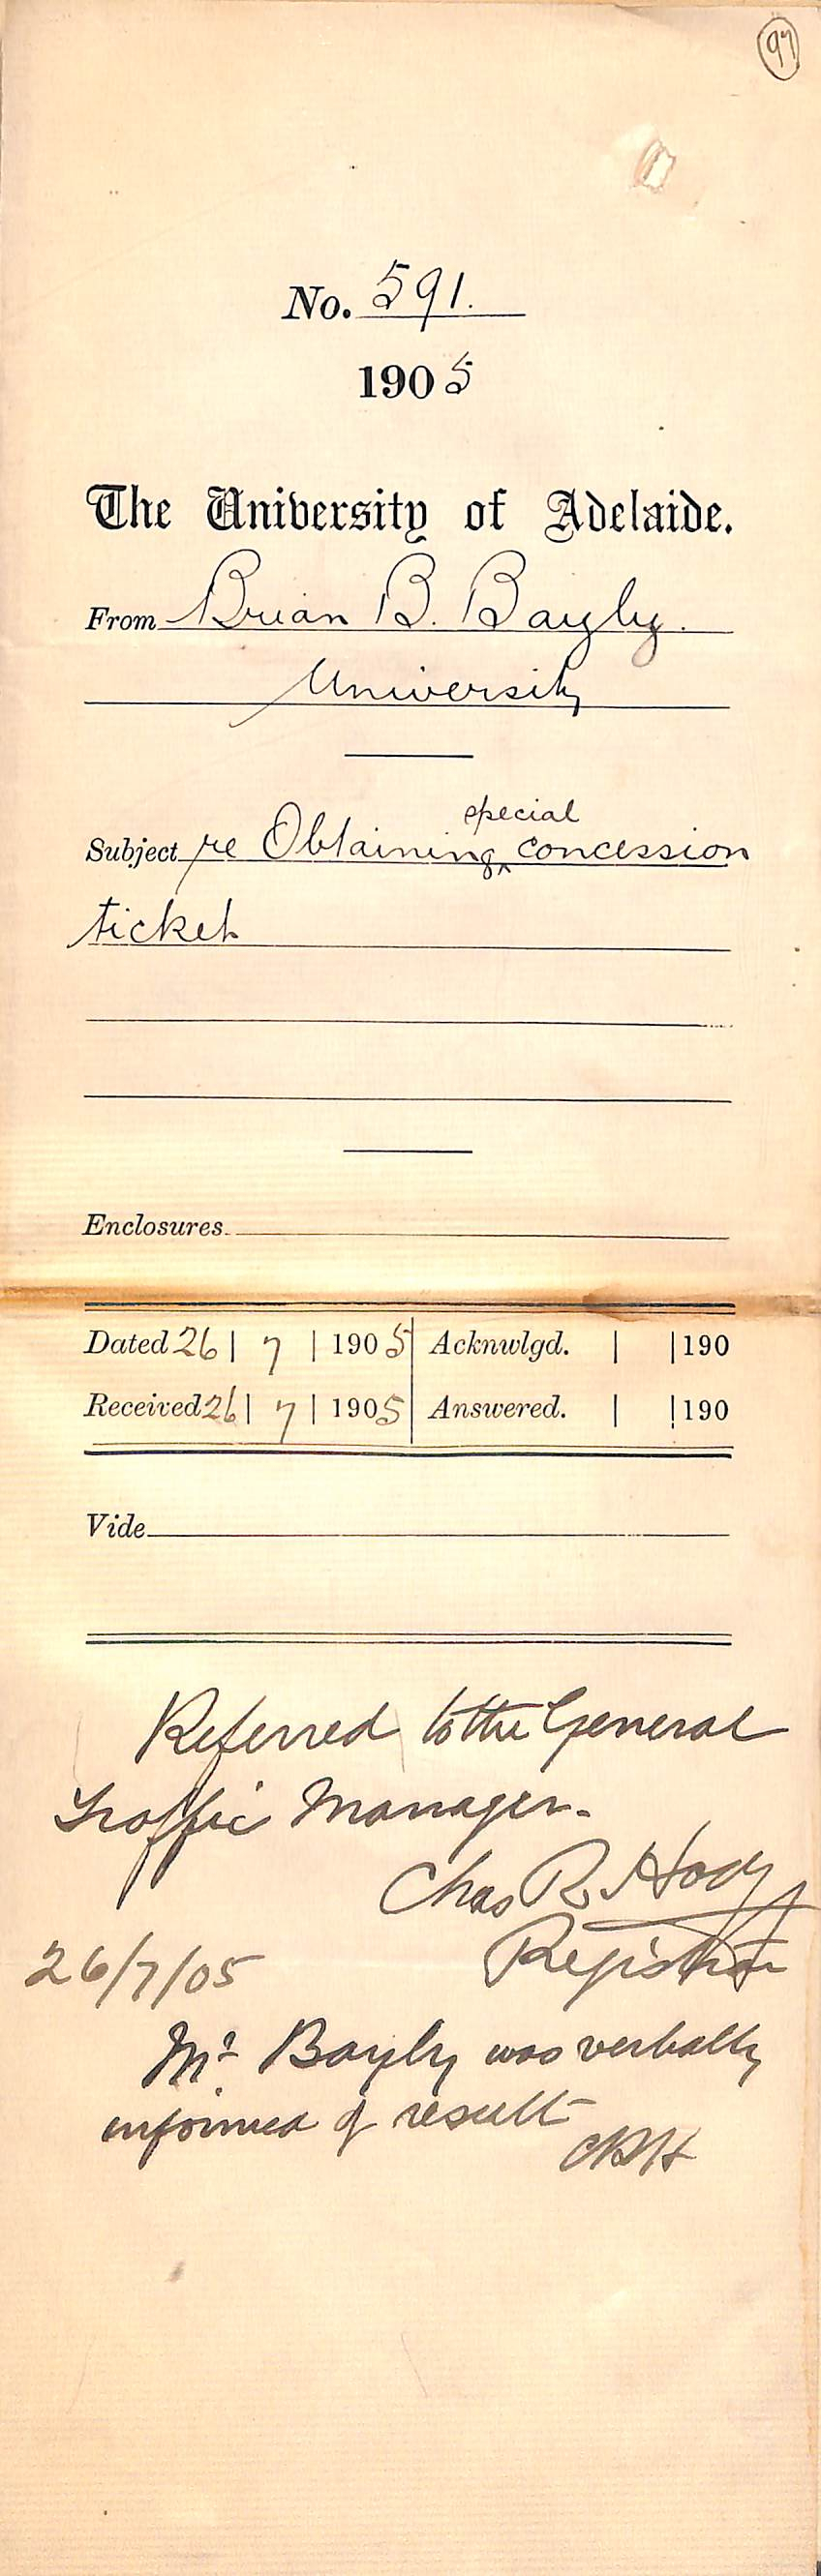 97
No. 591.
1905
The University of Adelaide.
From Brian B. Bayly.
University
special
Subject re Obtaining ^ concession
ticket
Enclosures
Dated 26 | 7 | 1905 Acknwlgd. | | 190
Received 26 | 7 | 1905 Answered. | | 190
Vide
Referred to the General
Traffic Manager.
Chas R. Hodge
Registrar
26/7/05
Mr Bayly was verbally
informed of result
CRH